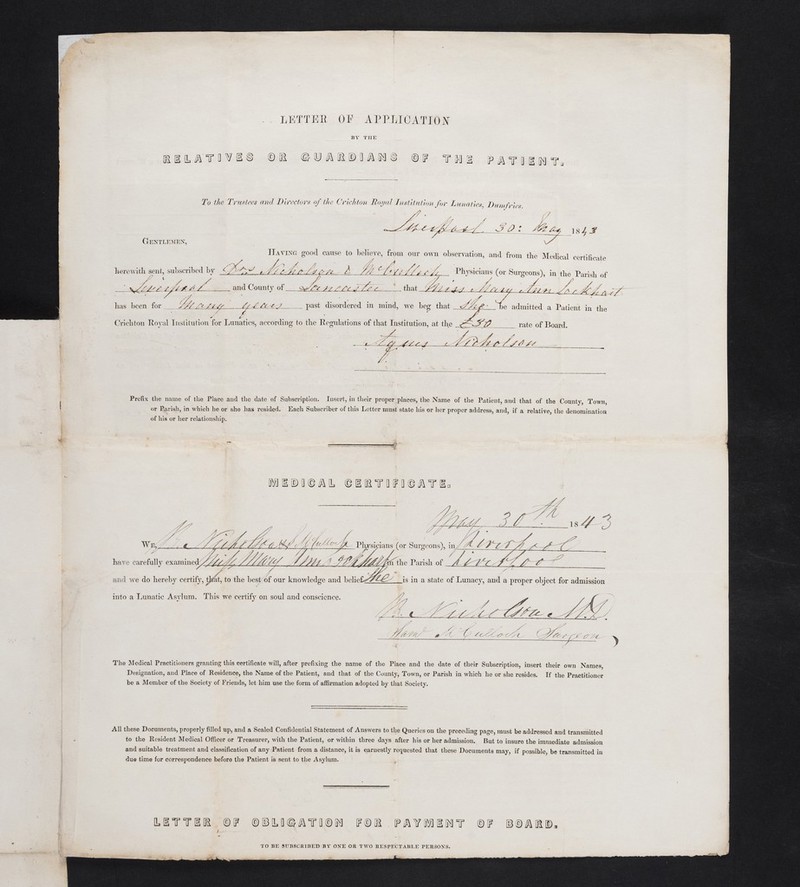 LETTER OF APPLICATION
BY THE
RELATIVES OR GUARDIANS OF THE PATIENT.
To the Trustees and Directors of the Crichton Royal Institution for Lunatics, Dumfries.
Liverpool 30: May 1843
GENTLEMEN,
HAVING good cause to believe, from our own observation, and from the Medical certificate
herewith sent, subscribed by Drs Nicholson & McCulloch Physicians (or Surgeons), in the Parish of
Liverpool and County of Lancaster that Miss Mary Ann Lockhart
has been for Many years past disordered in mind, we beg that She be admitted a Patient in the
Crichton Royal Institution for Lunatics, according to the Regulations of that Institution, at the rate of Board.
Agnes Nicholson
Prefix the name of the Place and the date of Subscription. Insert, in their proper places, the Name of the Patient, and that of the County, Town,
or Parish, in which he or she has resided. Each Subscriber of this Letter must state his or her proper address, and, if a relative, the denomination
of his or her relationship.
MEDICAL CERTIFICATE.
May 30th 1843
WE, Nicholson & McCulloch Physicians (or Surgeons), in Liverpool
have carefully examined Miss Mary Ann Lockhart in the Parish of Liverpool
and we do hereby certify, that, to the best of our knowledge and belief She is in a state of Lunacy, and a proper object for admission
into a Lunatic Asylum. This we certify on soul and conscience.
R Nicholson M.D.
McCulloch Surgeon
The Medical Practitioners granting this certificate will, after prefixing the name of the Place and the date of their Subscription, insert their own Names,
Designation, and Place of Residence, the Name of the Patient, and that of the County, Town, or Parish in which he or she resides. If the Practitioner
be a Member of the Society of Friends, let him use the form of affirmation adopted by that Society.
All these Documents, properly filled up, and a Sealed Confidential Statement of Answers to the Queries on the preceding page, must be addressed and transmitted
to the Resident Medical Officer or Treasurer, with the Patient, or within three days after his or her admission. But to insure the immediate admission
and suitable treatment and classification of any Patient from a distance, it is earnestly requested that these Documents may, if possible, be transmitted in
due time for correspondence before the Patient is sent to the Asylum.
LETTER OF OBLIGATION FOR PAYMENT OF BOARD.
TO BE SUBSCRIBED BY ONE OR TWO RESPECTABLE PERSONS.